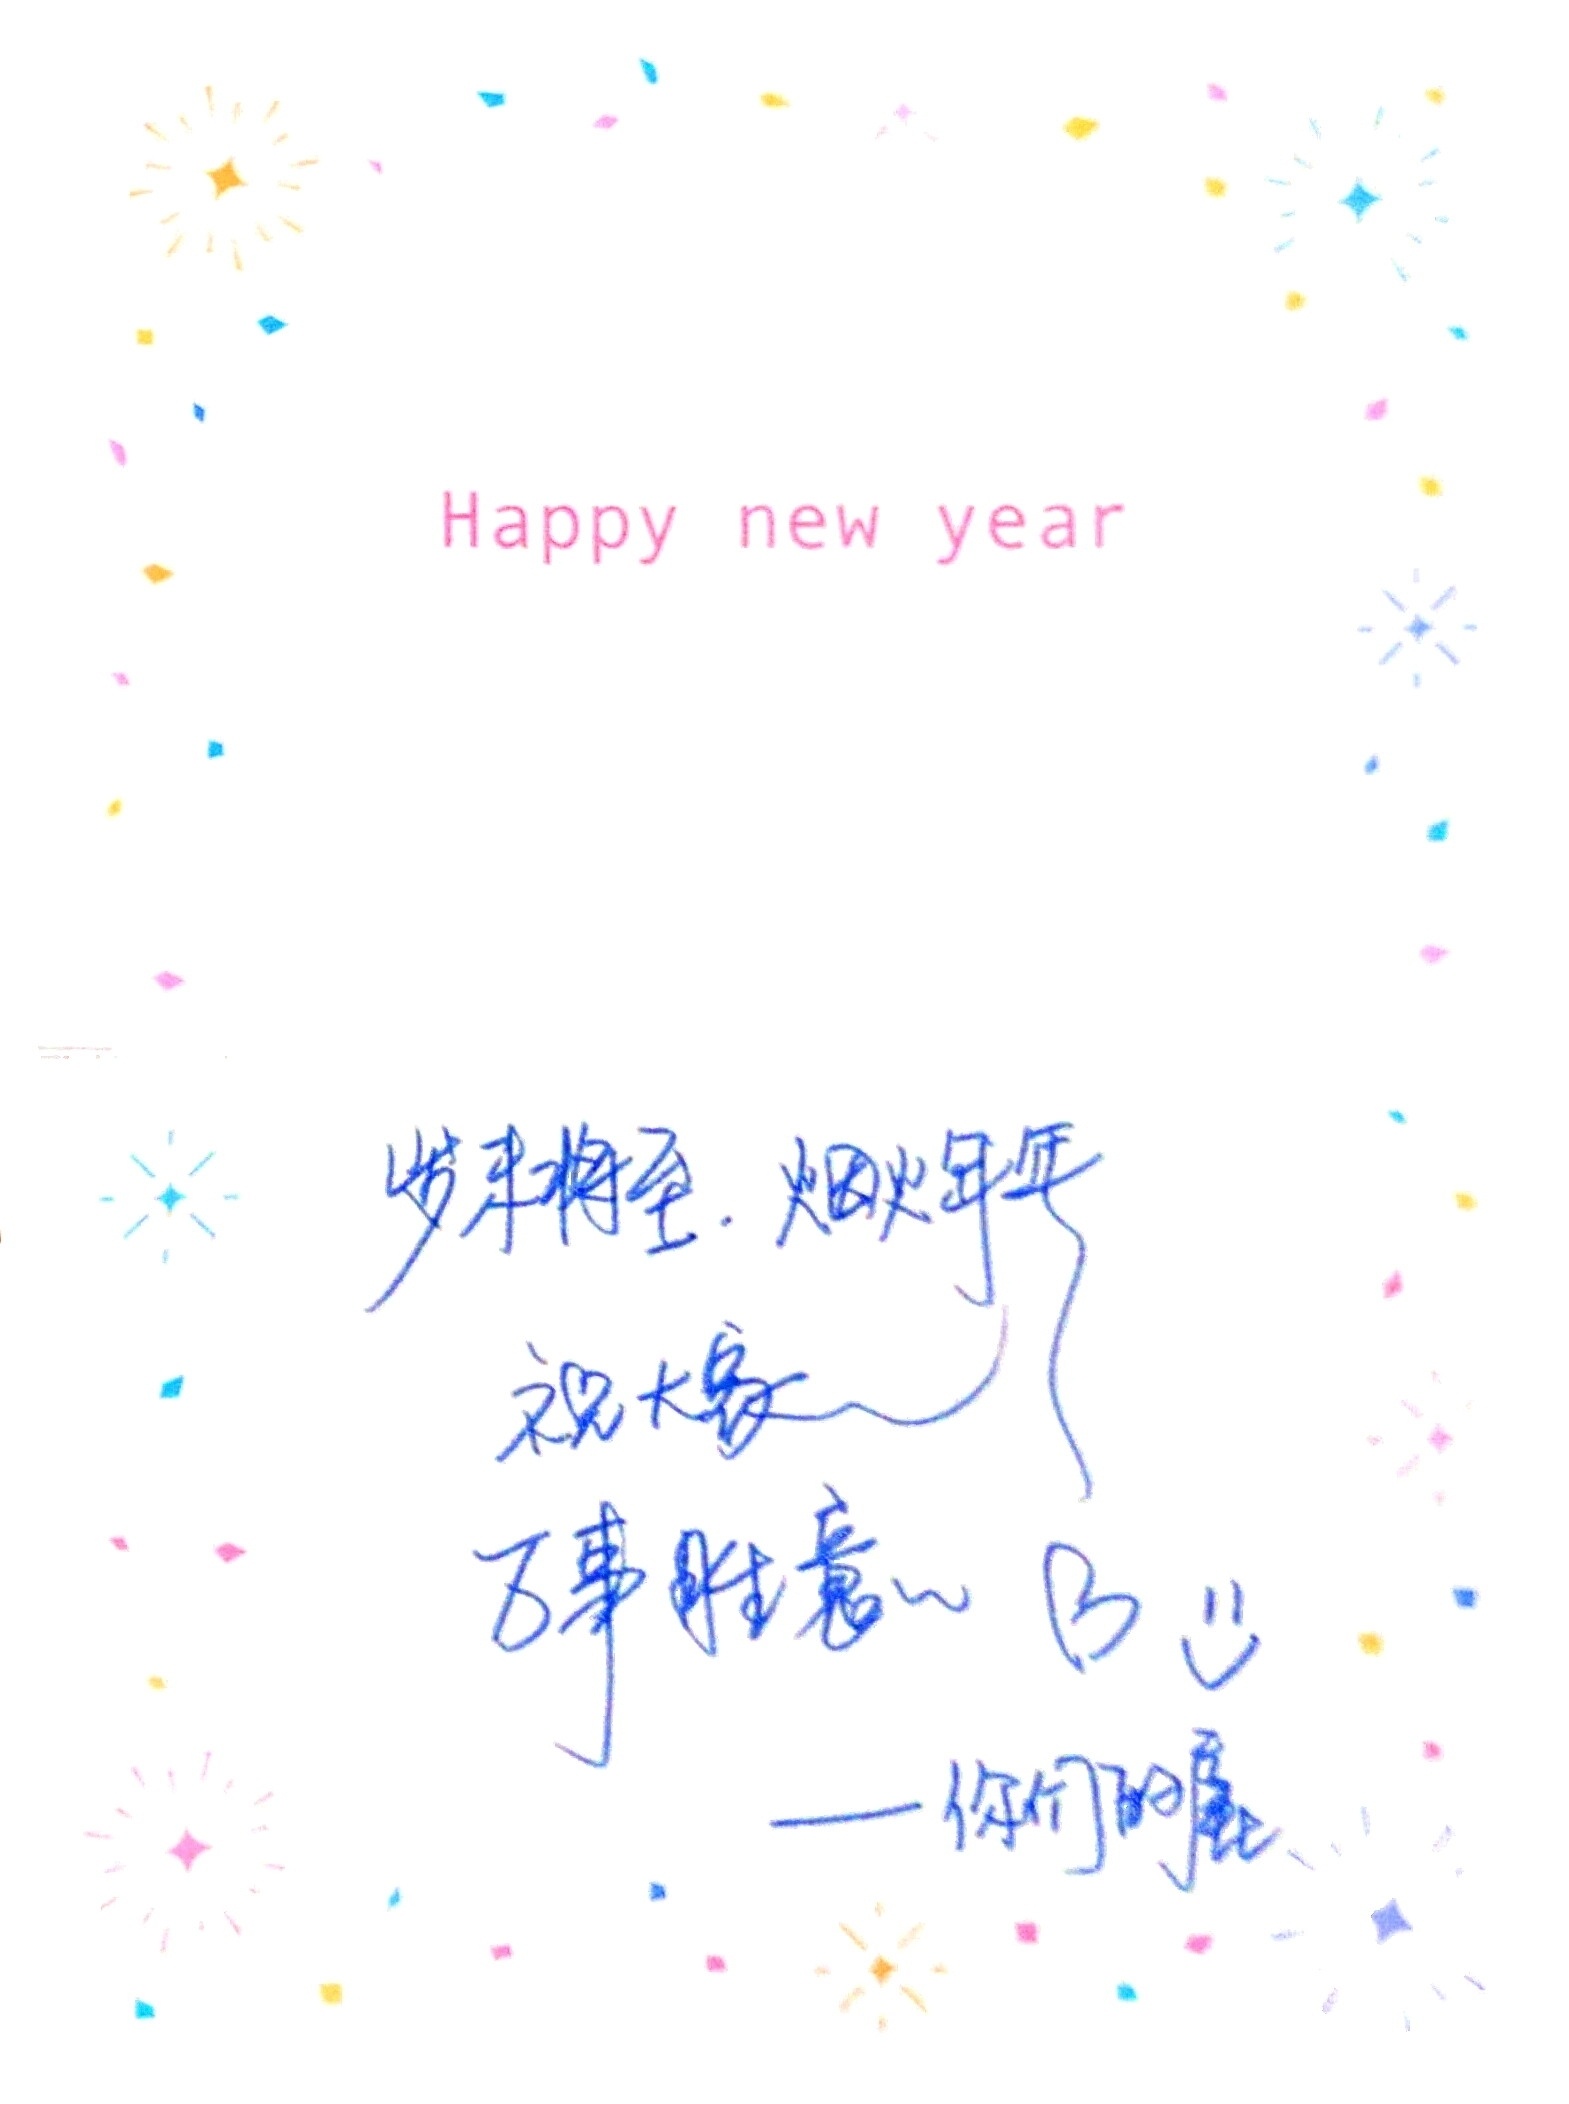 Happy new year
岁末将至.烟火年年
祝大家
万事胜意~
——你们的鹿